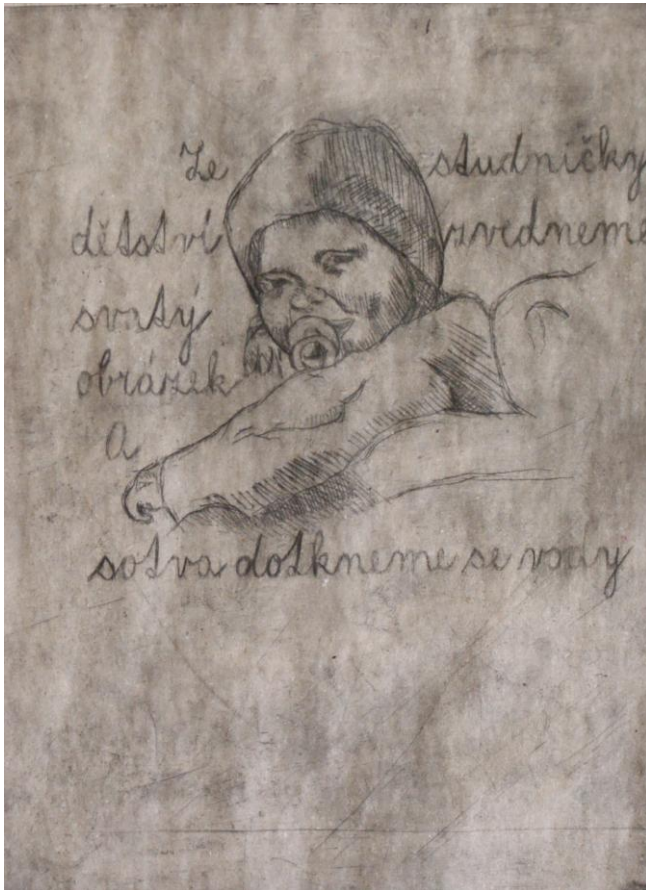 Ze studničky
dětství zvedneme
svatý
obrázek
a
sotva dotkneme se vody